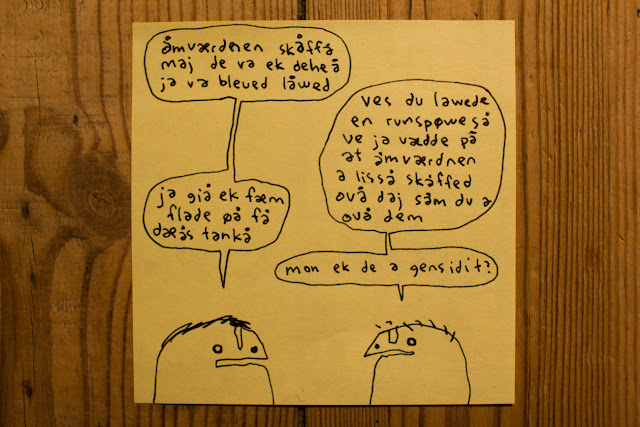 åmværdenen skåffå
maj de va ek deheå
ja va bleved låwed
ja giå ek fæm
flade øå få
dæås tankå
ves du lawede
en runspøweså
ve ja vædde på
at åmværdnen
a lisså skåffed
ovå daj såm du a
ovå dem
mon ek de a gensidit?